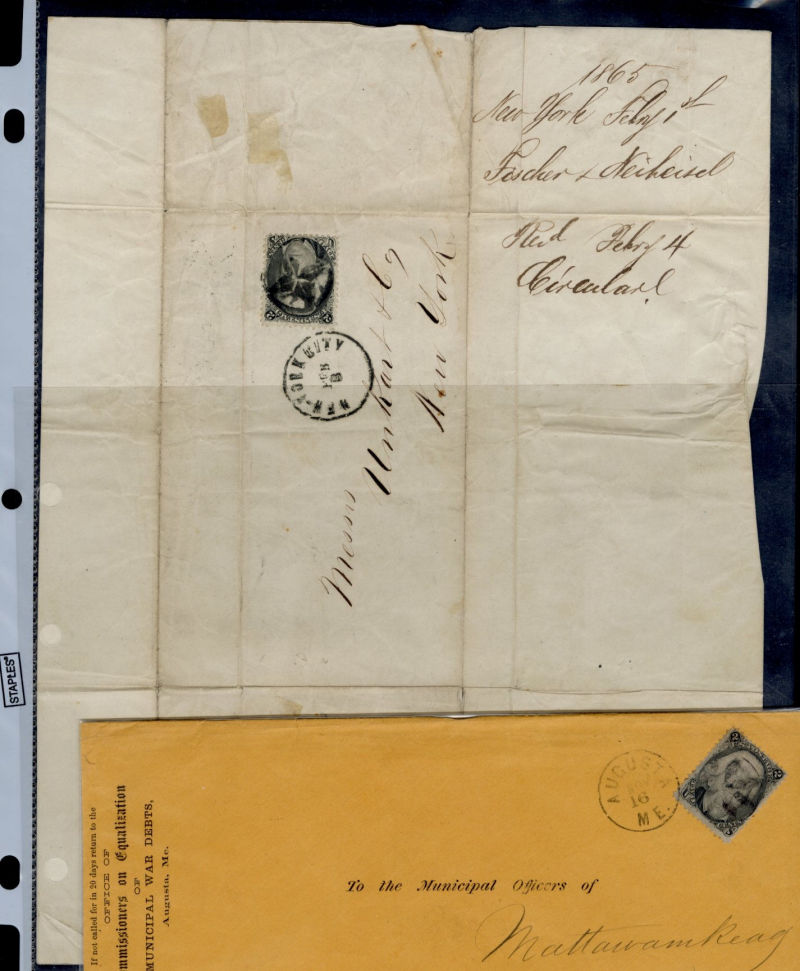 1865
New York Febry 1st
Fischer & Neiheisel
Recd Febry 4
Circular
2
2
NEW-YORK CITY
FEB
Messrs
Unkart & Co
New York
STAPLES
If not called for in 20 days return to the
OFFICE OF
mmissioners on Equalization
OF
MUNICIPAL WAR DEBTS,
Augusta, Me.
AUGUSTA
16
ME.
2
2
To the Municipal Officers of
Mattawamkeag